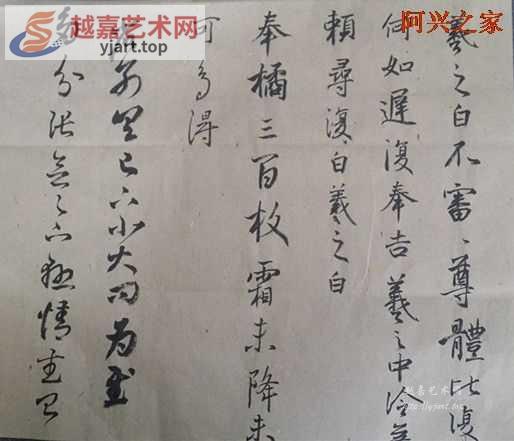 越嘉艺术网
yjart.top
阿兴之家
羲之白不審、尊體比復
何如遲復奉告羲之中冷無
頼尋復白羲之白
奉橘三百枚霜未降未
可多得
小大问为
分张念
情
越嘉艺术网